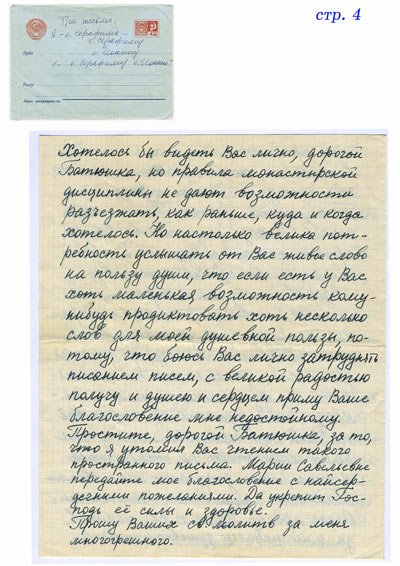 стр. 4
Три письма:
2 – о. Серафима –
о. Серафиму
о. Иоанну
1 – о. Серафиму о. Иоанна?
Куда
Кому
Хотелось бы видеть Вас лично, дорогой
Батюшка, но правила монастырской
дисциплины не дают возможности
разъезжать, как раньше, куда и когда
хотелось. Но настолько велика пот-
ребность услышать от Вас живое слово
на пользу души, что если есть у Вас
хоть маленькая возможность кому-
нибудь продиктовать хоть несколько
слов для моей душевной пользы, по-
тому, что боюсь Вас лично затруднять
писанием писем, с великой радостью
получу и душею и сердцем приму Ваше
благословение мне недостойному.
Простите, дорогой Батюшка, за то,
что я утомил Вас чтением такого
пространного письма. Марии Савельевне
передайте мое благословение с найсер-
дечными пожеланиями. Да укрепит Гос-
подь её силы и здоровье.
Прошу Ваших св. молитв за меня
многогрешного.